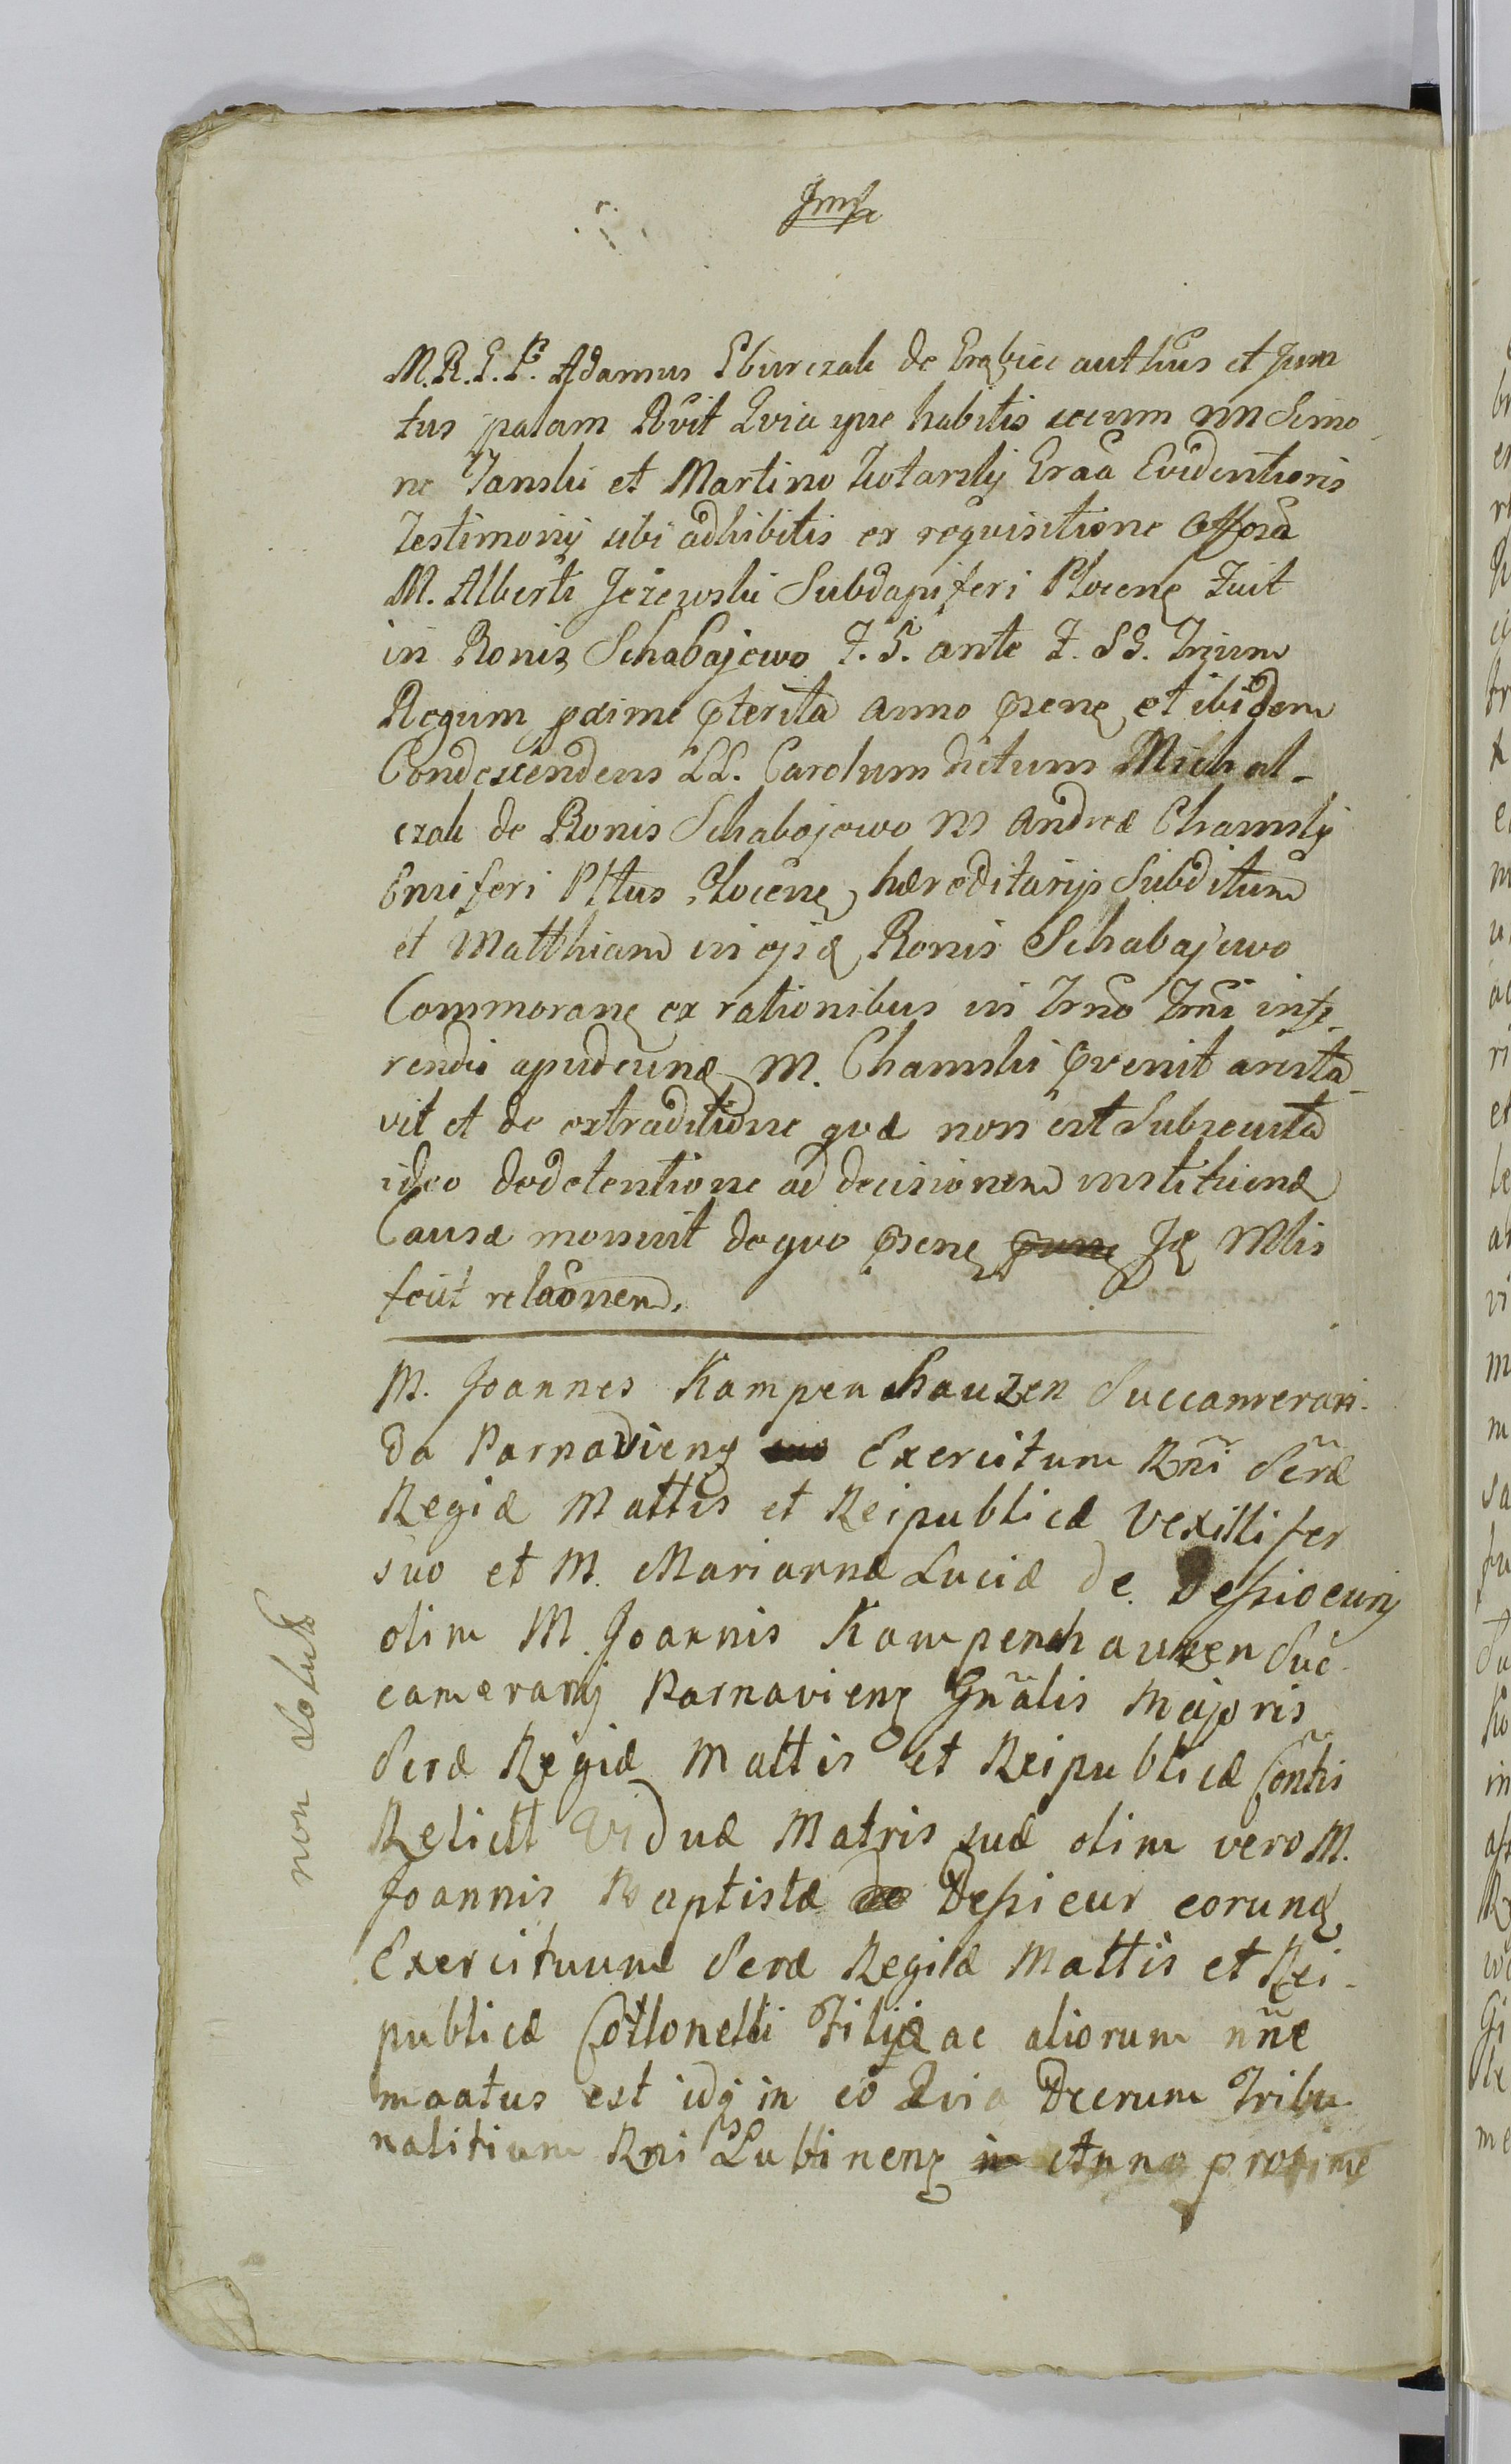 M. R. G. P. Adamus Sburczak de Grabiec authūs et Jura
tus palam Rvit Qvia ipse habitis secum nn Simo
ne Janski et Martino Kotarskij Graā Evidentioris
Testimonij sibi adhibitis ex reqvisitione Offosa
M. Alberti Jezewski Subdapiferi Plocenȩ Fuit
in Bonis Schabajewo F. 5. ante F. SS. Trium
Regum pxime pterita anno psenȩ et ibidem
Condescendens LL. Carolum dictum Michal-
czak de Bonis Schabajewo M Andreæ Chamskij
Ensiferi Pltus Plocenȩ hæreditarijs Subditum
et Matthiam in ejsdȩ Bonis Schabajewo
Commoranȩ ex rationibus in Trno Trni infe
rendis apud eund M. Chamski pvenit aresta
vit et de extraditione qvæ non est Subsecuta
ideo de detentione ad decisionem instituend
Causæ monuit de qvo psenȩ Jȩ Mlis
fecit relaōnem.
M. Joannes Kampenchauzen Succamerari-
da Parnavienȩ Exercitum Rñi Seræ
Regiæ Mattis et Reipublicæ Vexillifer
suo et M. Mariannæ Luciæ de Dessieurij
olim M. Joannis Kampenchauzen Suc-
camerarij Parnavienȩ Gnãlis Majoris
Seræ Regiæ Mattis et Reipublicæ Contis
Relictt Viduæ Matris suæ olim vero M.
Joannis Baptistæ Dessieur eorund
Exercituum Seræ Regiæ Mattis et Rei-
publicæ Cotlonelli Filijæ ac aliorum nñe
maatus est idȩ in eo Qvia Dcerum Tribu
nalitium Rni Lublinenȩ Anno proxime
non solut